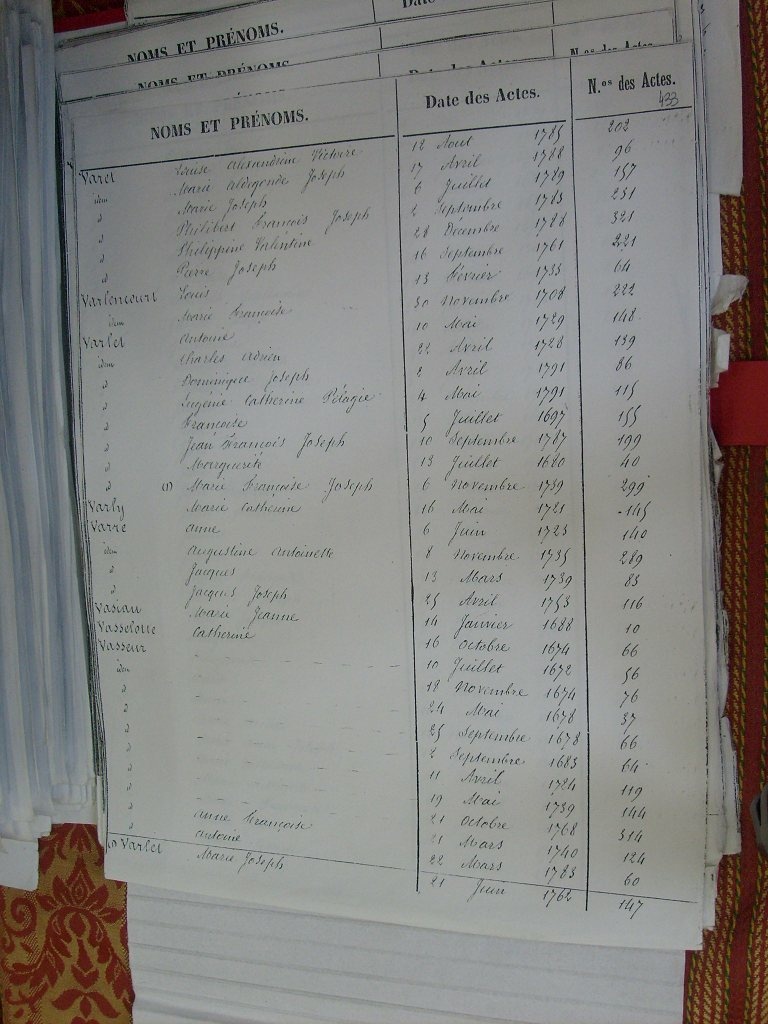 NOMS ET PRÉNOMS.
NOMS ET PRÉNOMS. Date des Actes. N.os des Actes.
433
Varet Louise Alexandrine Victoire 12 Aout 1785 202
idem Marie Aldegonde Joseph 17 Avril 1788 96
d Marie Joseph 6 Juillet 1789 157
d Philibert François Joseph 2 Septembre 1783 251
d Philippine Valentine 28 Decembre 1788 321
d Pierre Joseph 16 Septembre 1761 221
Varlencourt Louis 13 Février 1733 64
idem Marie Françoise 30 Novembre 1708 222
Varlet Antoine 10 Mai 1729 148
idem Charles Adrien 22 Avril 1728 139
d Dominique Joseph 2 Avril 1791 86
d Eugénie Catherine Pélagie 4 Mai 1791 115
d Françoise 5 Juillet 1697 155
d Jean François Joseph 10 Septembre 1787 199
d Marguerite 13 Juillet 1680 40
d (1) Marie Françoise Joseph 6 Novembre 1739 299
Varly Marie Catherine 16 Mai 1721 145
Varre Anne 6 Juin 1723 140
idem Augustine Antoinette 8 Novembre 1735 289
d Jacques 13 Mars 1739 83
d Jacques Joseph 25 Avril 1753 116
Vasiau Marie Jeanne 14 Janvier 1688 10
Vasselotte Catherine 16 Octobre 1674 66
Vasseur 10 Juillet 1672 56
idem 18 Novembre 1674 76
d 24 Mai 1678 37
d 25 Septembre 1678 66
d 2 Septembre 1683 64
d 11 Avril 1724 119
d 19 Mai 1739 144
d 21 Octobre 1768 314
d Anne Françoise 21 Mars 1740 124
d Antoine 22 Mars 1783 60
(1) Varlet Marie Joseph 21 Juin 1762 147